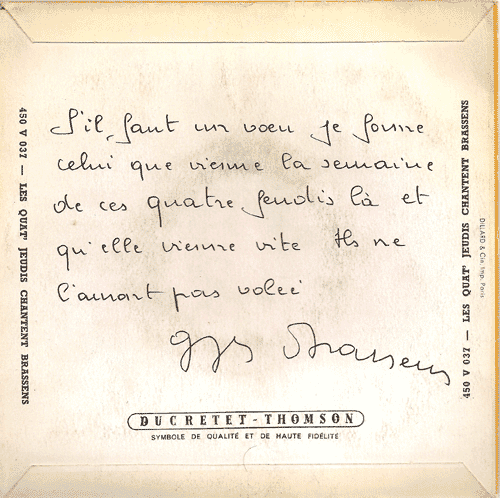 S'il faut un vœu je forme
celui que vienne la semaine
de ces quatre jeudis là et
qu'elle vienne vite Ils ne
l'auront pas volée
Georges Brassens
450 V 037 — LES QUAT' JEUDIS CHANTENT BRASSENS
450 V 037 — LES QUAT' JEUDIS CHANTENT BRASSENS
DILLARD & Cie. Imp. Paris
DUCRETET-THOMSON
SYMBOLE DE QUALITÉ ET DE HAUTE FIDÉLITÉ